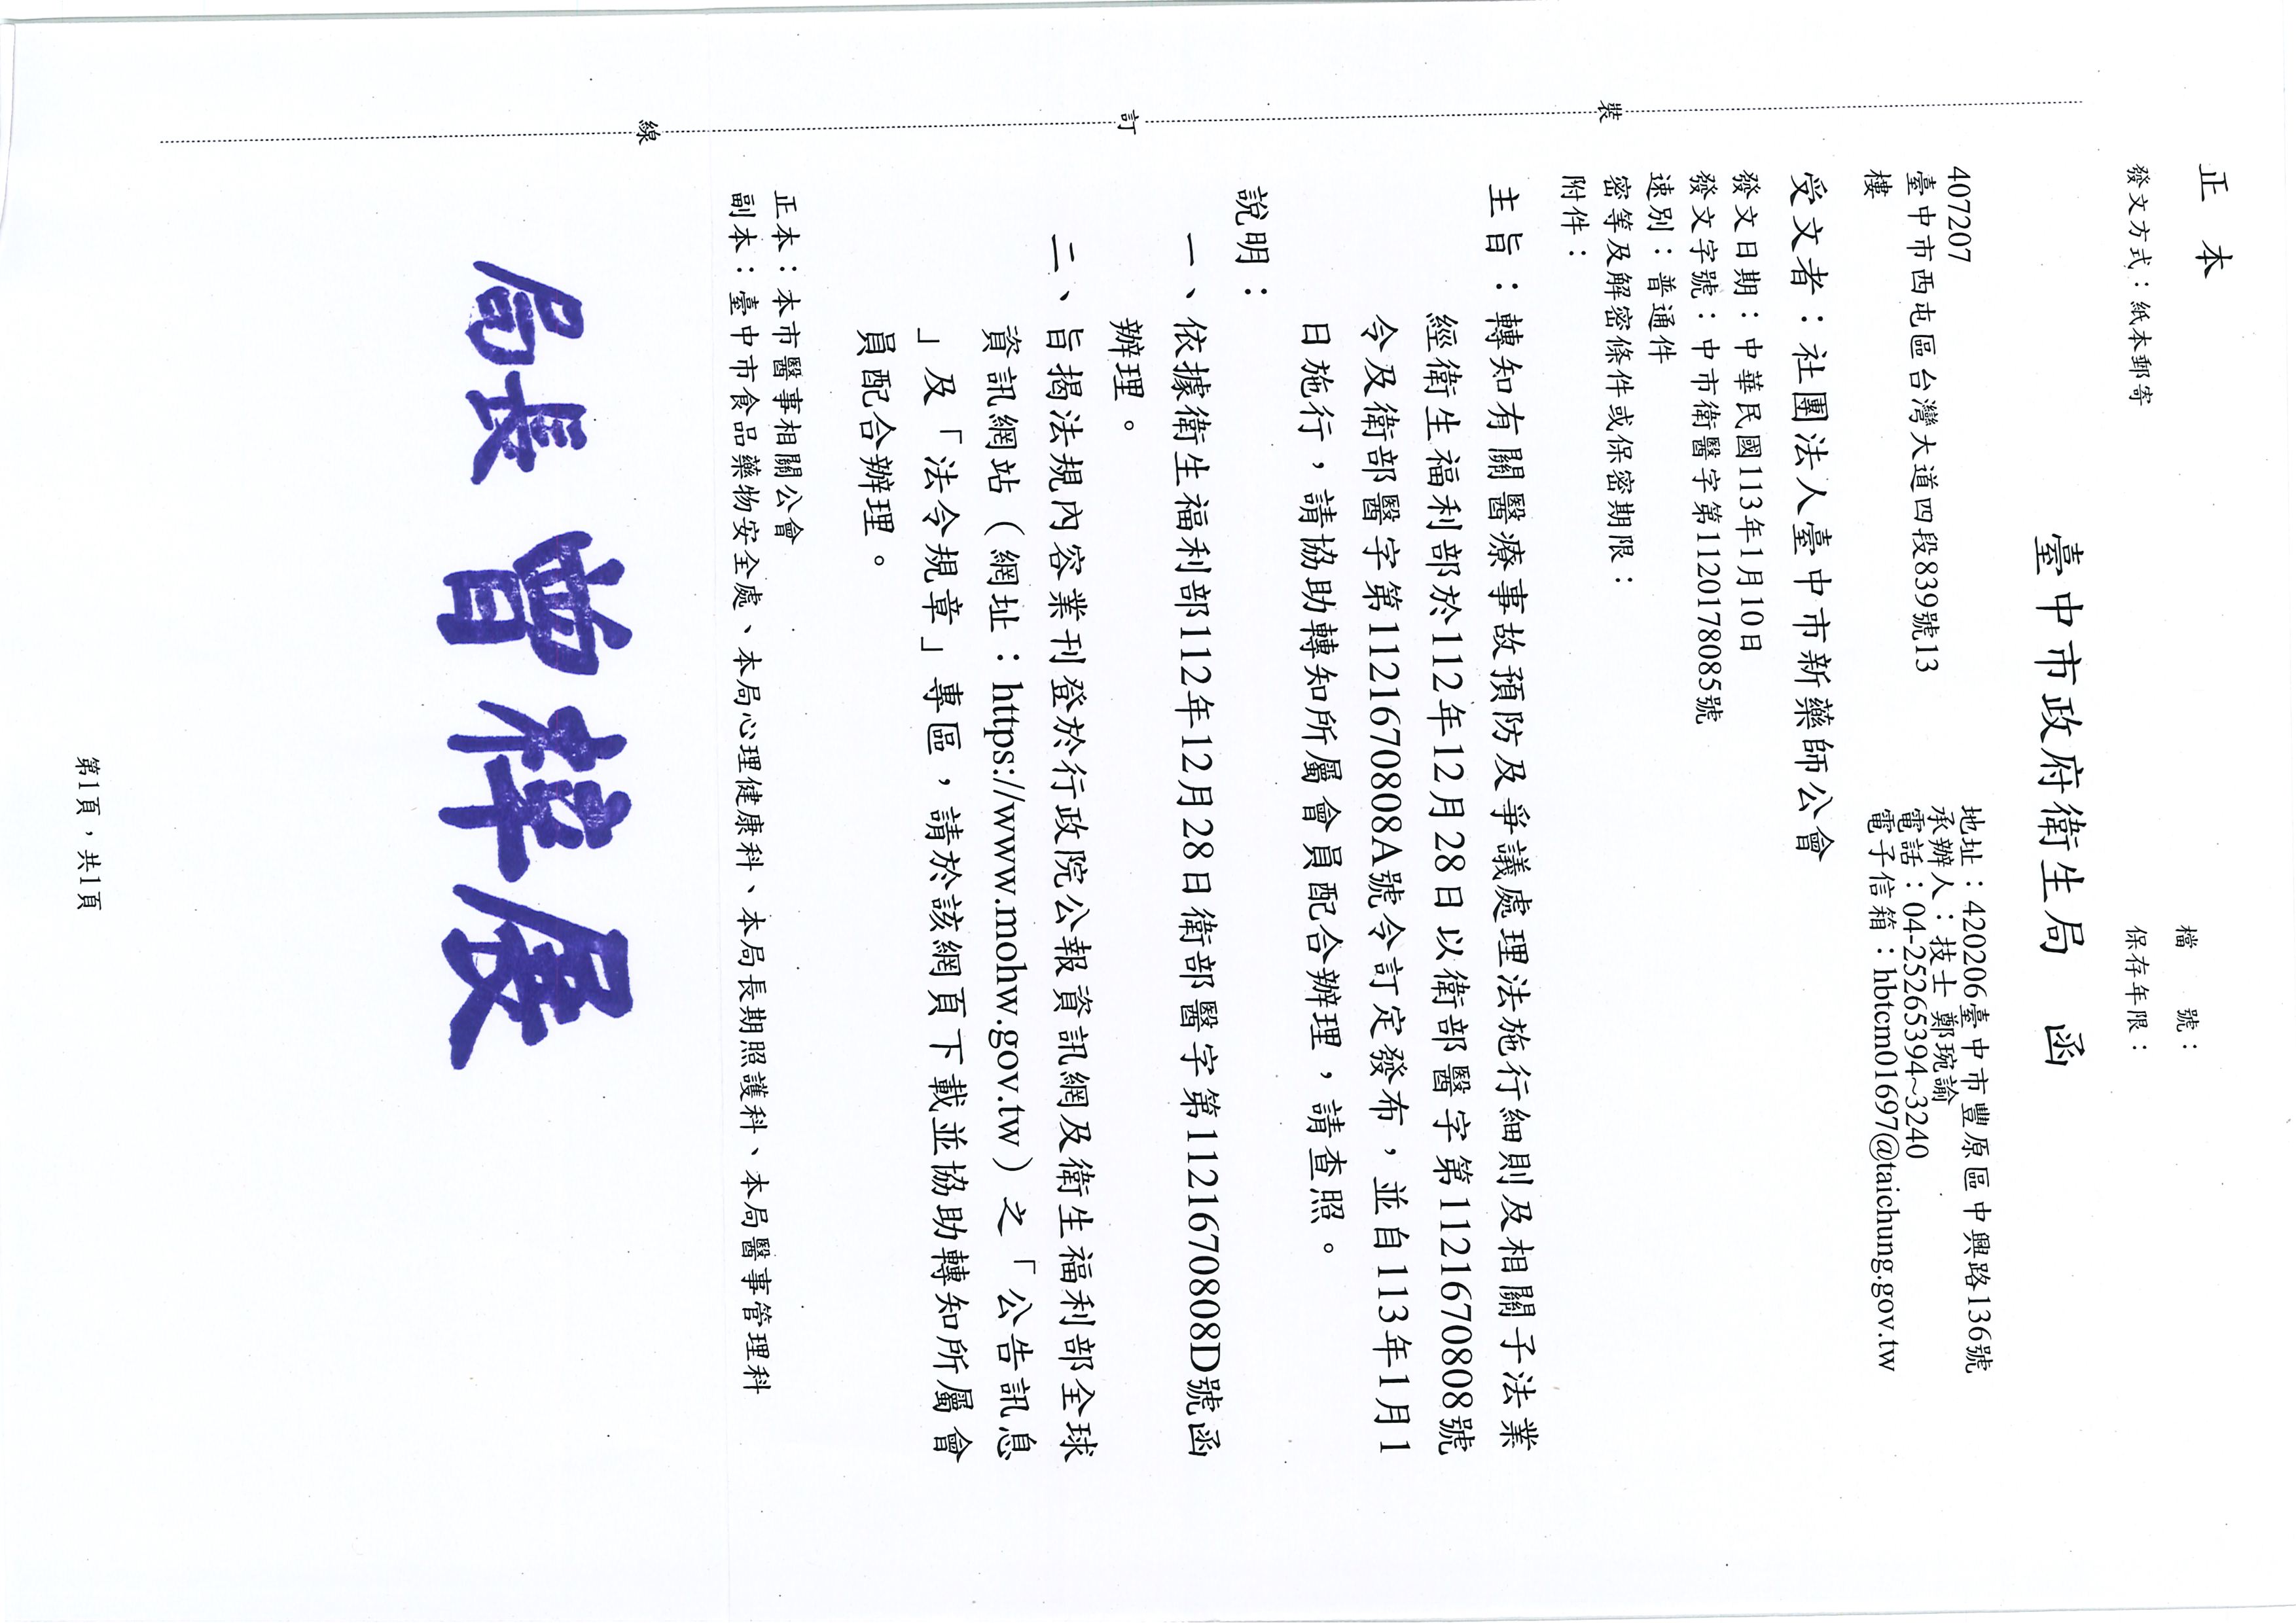 正本
發文方式：紙本郵寄
檔　　號：
保存年限：
臺中市政府衛生局　函
407207
臺中市西屯區台灣大道四段839號13
樓
地址：420206臺中市豐原區中興路136號
承辦人：技士 鄭琬諭
電話：04-25265394~3240
電子信箱：hbtcm01697@taichung.gov.tw
受文者：社團法人臺中市新藥師公會
發文日期：中華民國113年1月10日
發文字號：中市衛醫字第1120178085號
速別：普通件
密等及解密條件或保密期限：
附件：
主旨：轉知有關醫療事故預防及爭議處理法施行細則及相關子法業
經衛生福利部於112年12月28日以衛部醫字第1121670808號
令及衛部醫字第1121670808A號令訂定發布，並自113年1月1
日施行，請協助轉知所屬會員配合辦理，請查照。
說明：
一、依據衛生福利部112年12月28日衛部醫字第1121670808D號函
辦理。
二、旨揭法規內容業刊登於行政院公報資訊網及衛生福利部全球
資訊網站（網址：https://www.mohw.gov.tw）之「公告訊息
」及「法令規章」專區，請於該網頁下載並協助轉知所屬會
員配合辦理。
正本：本市醫事相關公會
副本：臺中市食品藥物安全處、本局心理健康科、本局長期照護科、本局醫事管理科
局長 曾梓展
裝
訂
線
第1頁，共1頁